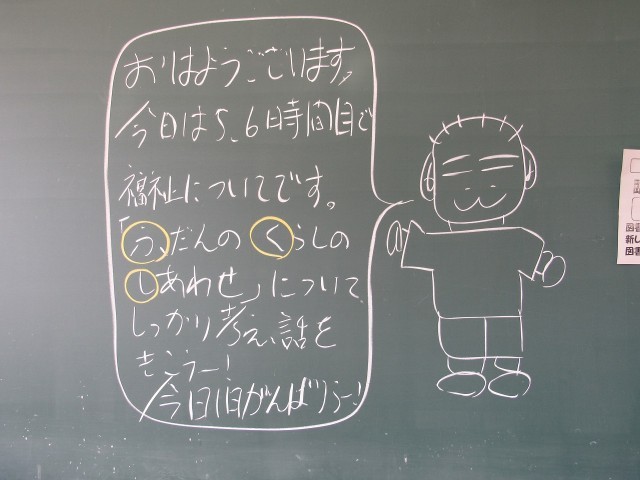 おはようございます。
今日は5、6時間目で
福祉についてです。
「ふだんの くらしの
しあわせ」について
しっかり考え、話を
きこうー!
今日1日がんばろうー!
新し
図書